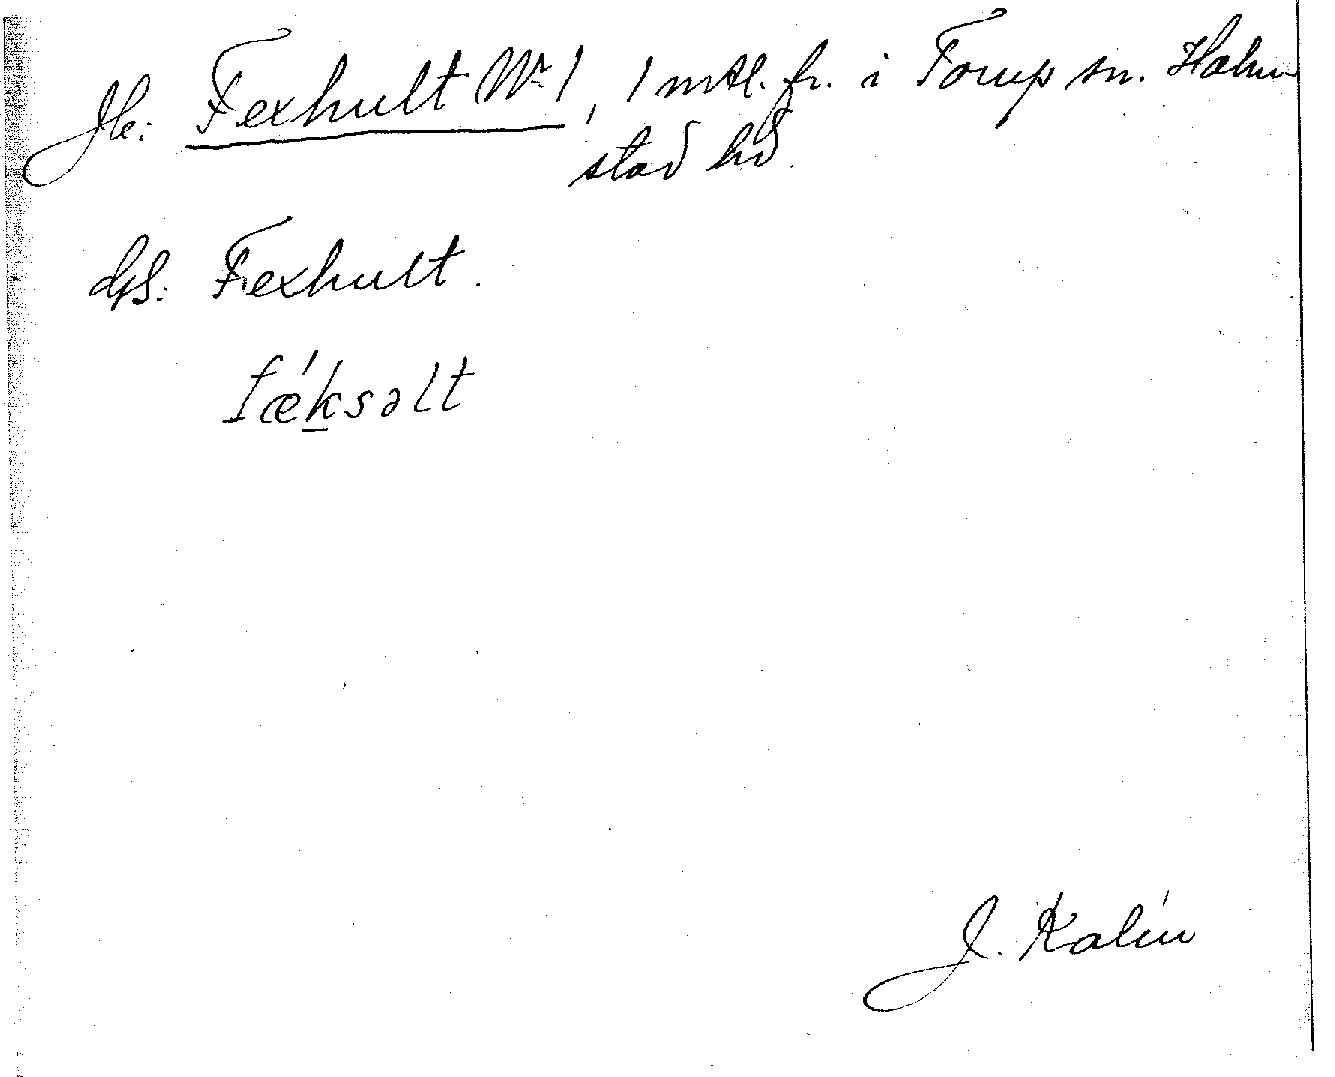 Jb: Fexhult Nr 1, 1 mtl. fr. i Torup sn. Halm
stad hd.
Gs: Fexhult.
fǽksəlt
J. Kalén